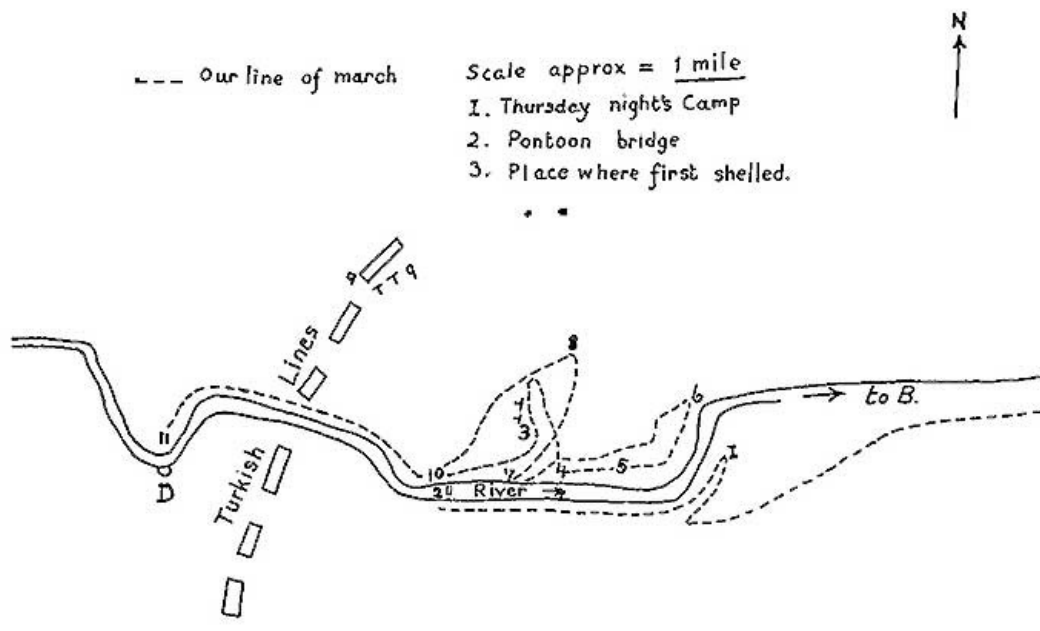 N
Our line of march
Scale approx = 1 mile
1. Thursday night's Camp
2. Pontoon bridge
3. Place where first shelled.
9
T T 9
Lines
8
6
to B.
3
11
10
4
5
1
D
River
Turkish